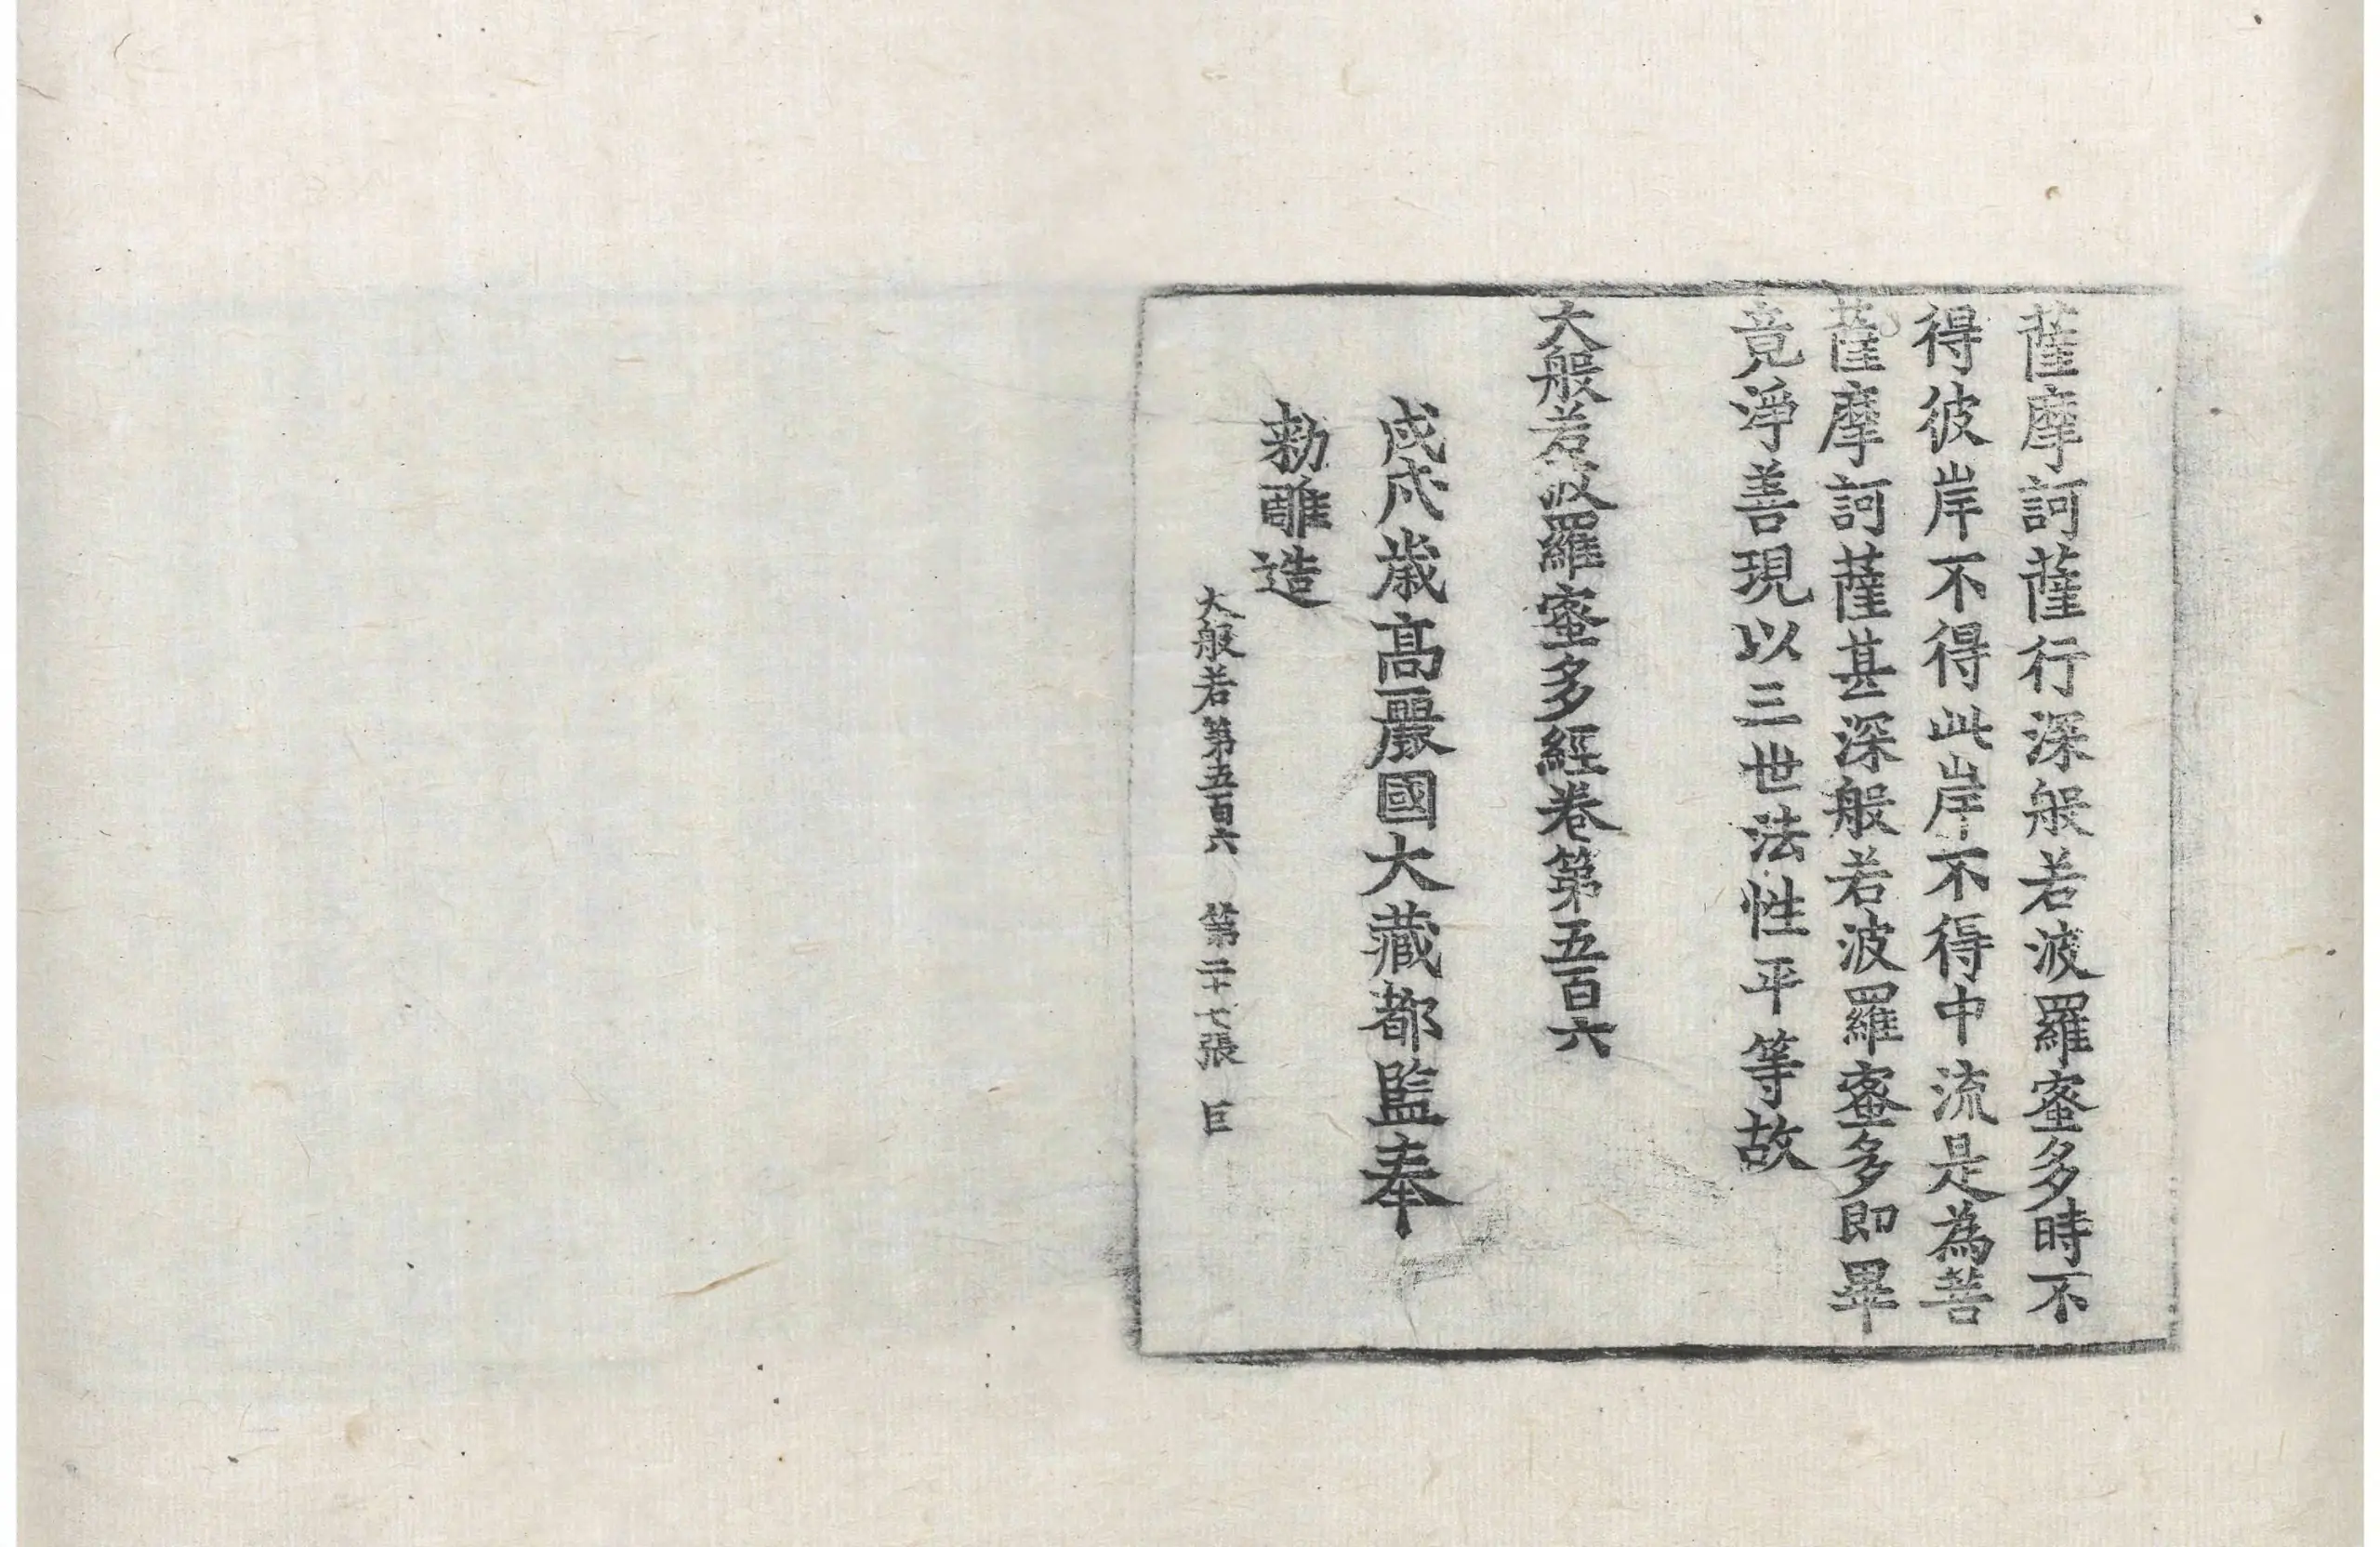 薩摩訶薩行深般若波羅蜜多時不
得彼岸不得此岸不得中流是為菩
薩摩訶薩甚深般若波羅蜜多即畢
竟淨善現以三世法性平等故
大般若波羅蜜多經卷第五百六
戊戌歲高麗國大藏都監奉
勅雕造
大般若第五百六 第二十七張 巨